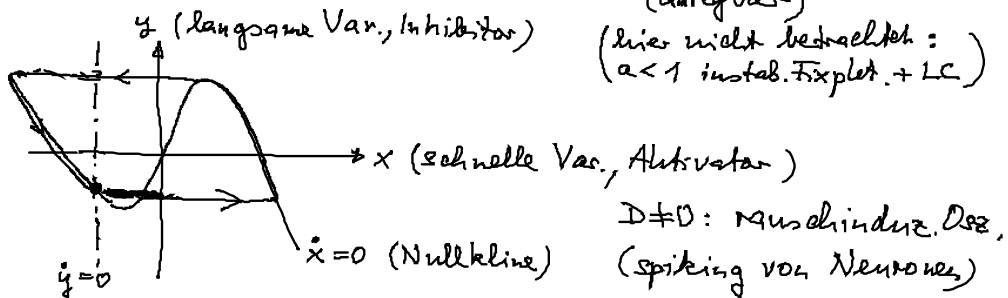 (anregbar)
y (langsame Var., Inhibitor)
(hier nicht betrachtet:
a<1 instab. Fixpkt. + LC)
x (schnelle Var., Aktivator)
D≠0: rauschinduz. Osz.
ẋ=0 (Nullkline)
(spiking von Neuronen)
ẏ=0